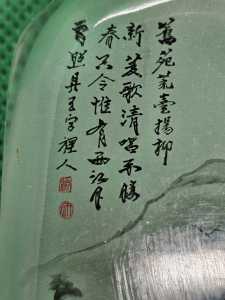 舊苑荒臺楊柳
新菱歌清唱不勝
春只今惟有西江月
曾照吳王宮裡人